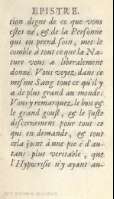 EPISTRE.
tion digne de ce que vous
estes né, & de la Personne
qui en prend soin, met le
comble à tout ce que la Na-
ture vous a liberalement
donné. Vous voyez, dans ce
mesme Sang tout ce qu'il y
a de plus grand au monde:
Vous y remarquez, le bon &
le grand goust, & le juste
discernement pour tout ce
qui en demande, & tout
cela joint à une pieté d'au-
tant plus veritable, que
l'Hypocrisie n'y ayant au-